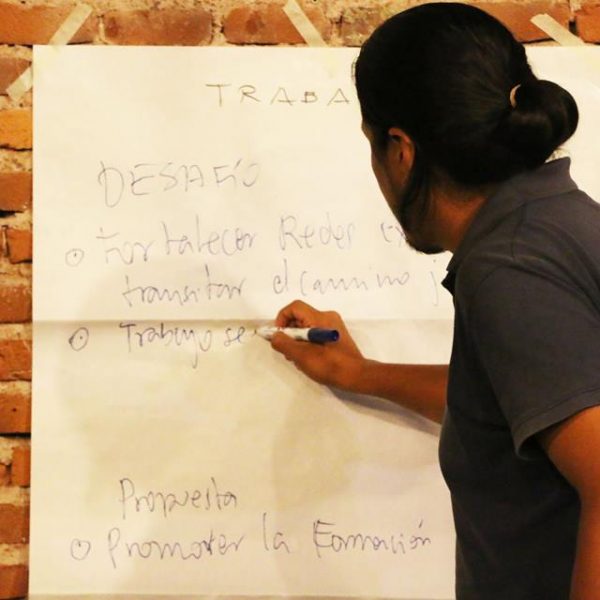 TRABA
DESAFÍO
Fortalecer Redes
transitar el camino j
Trabajo se
Propuesta
Promover la Formación